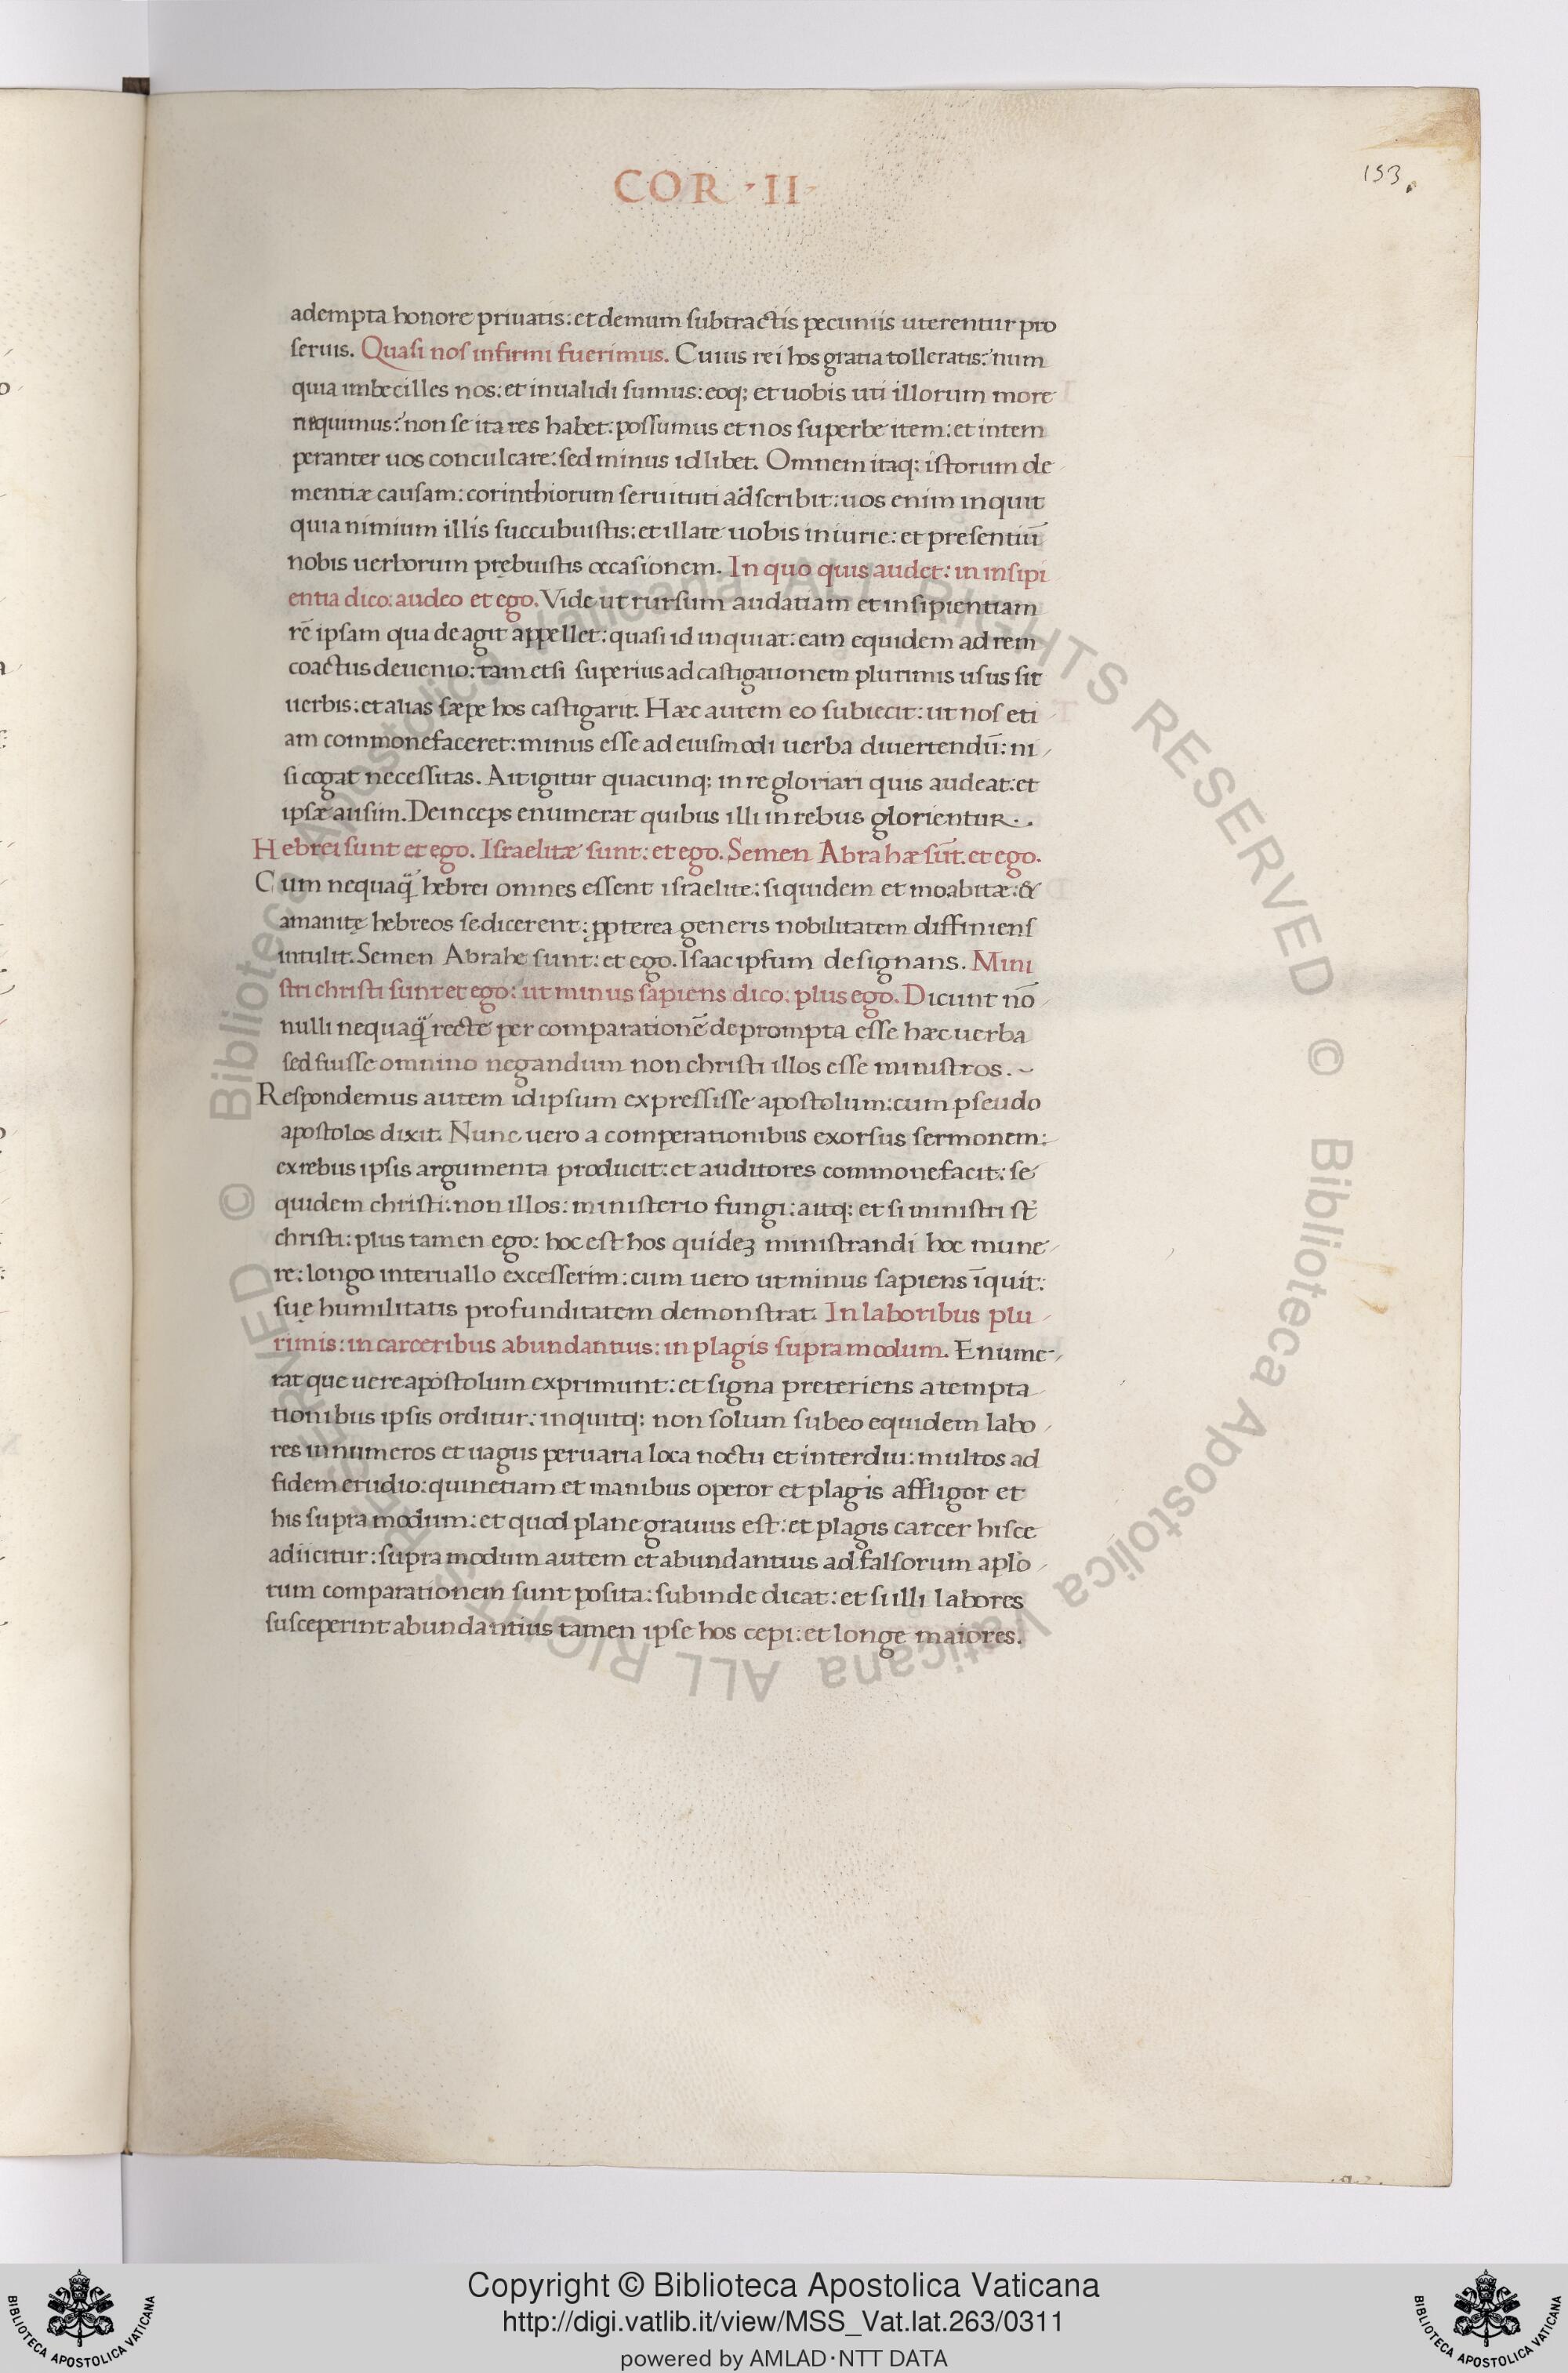 COR · II
153.
adempta honore priuatis: et demum subtractis pecuniis uterentur pro
seruis. Quasi nos infirmi fuerimus. Cuius rei hos gratia tolleratis: num
quia imbecilles nos: et inualidi sumus: eoq; et uobis uti illorum more
nequimus: non se ita res habet: possumus et nos superbe item: et intem
peranter uos conculcare: sed minus id libet. Omnem itaq; istorum de
mentiæ causam: corinthiorum seruituti adscribit: uos enim inquit
quia nimium illis succubuistis: et illate uobis iniurie: et presentiū
nobis uerborum prębuistis occasionem. In quo quis audet: in insipi
entia dico: audeo et ego. Vide ut rursum audatiam et insipientiam
rē ipsam qua de agit appellet: quasi id inquiat: eam equidem ad rem
coactus deuenio: tam etsi superius ad castigationem plurimis usus sit
uerbis: et alias sæpe hos castigarit. Hæc autem eo subiecit: ut nos eti
am commonefaceret: minus esse ad eiusmodi uerba diuertendū: ni
si cogat necessitas. Ait igitur quacunq; in re gloriari quis audeat: et
ipsæ ausim. Deinceps enumerat quibus illi in rebus glorientur.
Hebrei sunt et ego. Israelitæ sunt: et ego. Semen Abrahæ sūt. et ego.
Cum nequaq̄ hebrei omnes essent israelite: siquidem et moabitæ: &
amanitę hebreos se dicerent: ꝓpterea generis nobilitatem diffiniens
intulit. Semen Abrahe sunt: et ego. Isaac ipsum designans. Mini
stri christi sunt et ego: ut minus sapiens dico: plus ego. Dicunt nō
nulli nequaq̄ recte per comparationē deprompta esse hæc uerba
sed fuisse omnino negandum non christi illos esse ministros.
Respondemus autem id ipsum expressisse apostolum: cum pseudo
apostolos dixit. Nunc uero a comperationibus exorsus sermonem:
ex rebus ipsis argumenta producit: et auditores commonefacit: se
quidem christi: non illos: ministerio fungi: aitq; et si ministri st̄
christi: plus tamen ego: hoc est hos quideʒ ministrandi hoc mune
re: longo interuallo excesserim: cum uero ut minus sapiens īquit:
suę humilitatis profunditatem demonstrat. In laboribus plu
rimis: in carceribus abundantius: in plagis supra modum. Enume
rat que uere apostolum exprimunt: et signa preteriens a tempta
tionibus ipsis orditur: inquitq; non solum subeo equidem labo
res innumeros et uagus per uaria loca noctu et interdiu: multos ad
fidem erudio: quinetiam et manibus operor et plagis affligor et
his supra modum: et quod plane grauius est: et plagis carcer hisce
adiicitur: supra modum autem et abundantius ad falsorum aplō
rum comparationem sunt posita: subinde dicat: et si illi labores
susceperint abundantius tamen ipse hos cepi: et longe maiores.
© Biblioteca Apostolica Vaticana ALL RIGHTS RESERVED
© Biblioteca Apostolica Vaticana ALL RIGHTS RESERVED
Copyright © Biblioteca Apostolica Vaticana
http://digi.vatlib.it/view/MSS_Vat.lat.263/0311
powered by AMLAD·NTT DATA
BIBLIOTECA APOSTOLICA VATICANA
BIBLIOTECA APOSTOLICA VATICANA